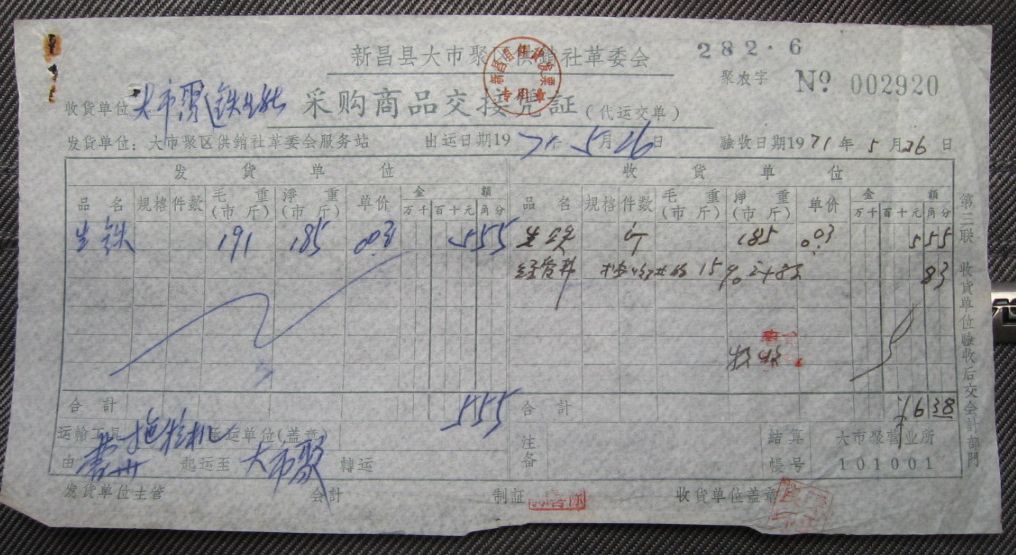 新昌县大市聚区供銷社革委会
282·6
聚农字 № 002920
收货单位 大市聚区铁
采购商品交接凭証(代运交单)
发货单位:大市聚区供銷社革委会服务站 出运日期1971年5月26日 验收日期1971年5月26日
发货单位 收货单位
品名 規格 件数 毛重(市斤) 淨重(市斤) 单价 金額 万千百十元角分 品名 規格 件数 毛重(市斤) 淨重(市斤) 单价 金額 万千百十元角分
生铁 191 185 003 555 生铁 185 0.03 555
经营料 15% 83
验收
合計 555 合計 638
运输工具 拖拉机 承运单位(盖章) 备注 結算 大市聚营业所
由 起运至 大市聚 轉运 帳号 101001
发货单位主管 会計 制証 收货单位盖章
第二联 收货单位验收后交会計部門
专用章